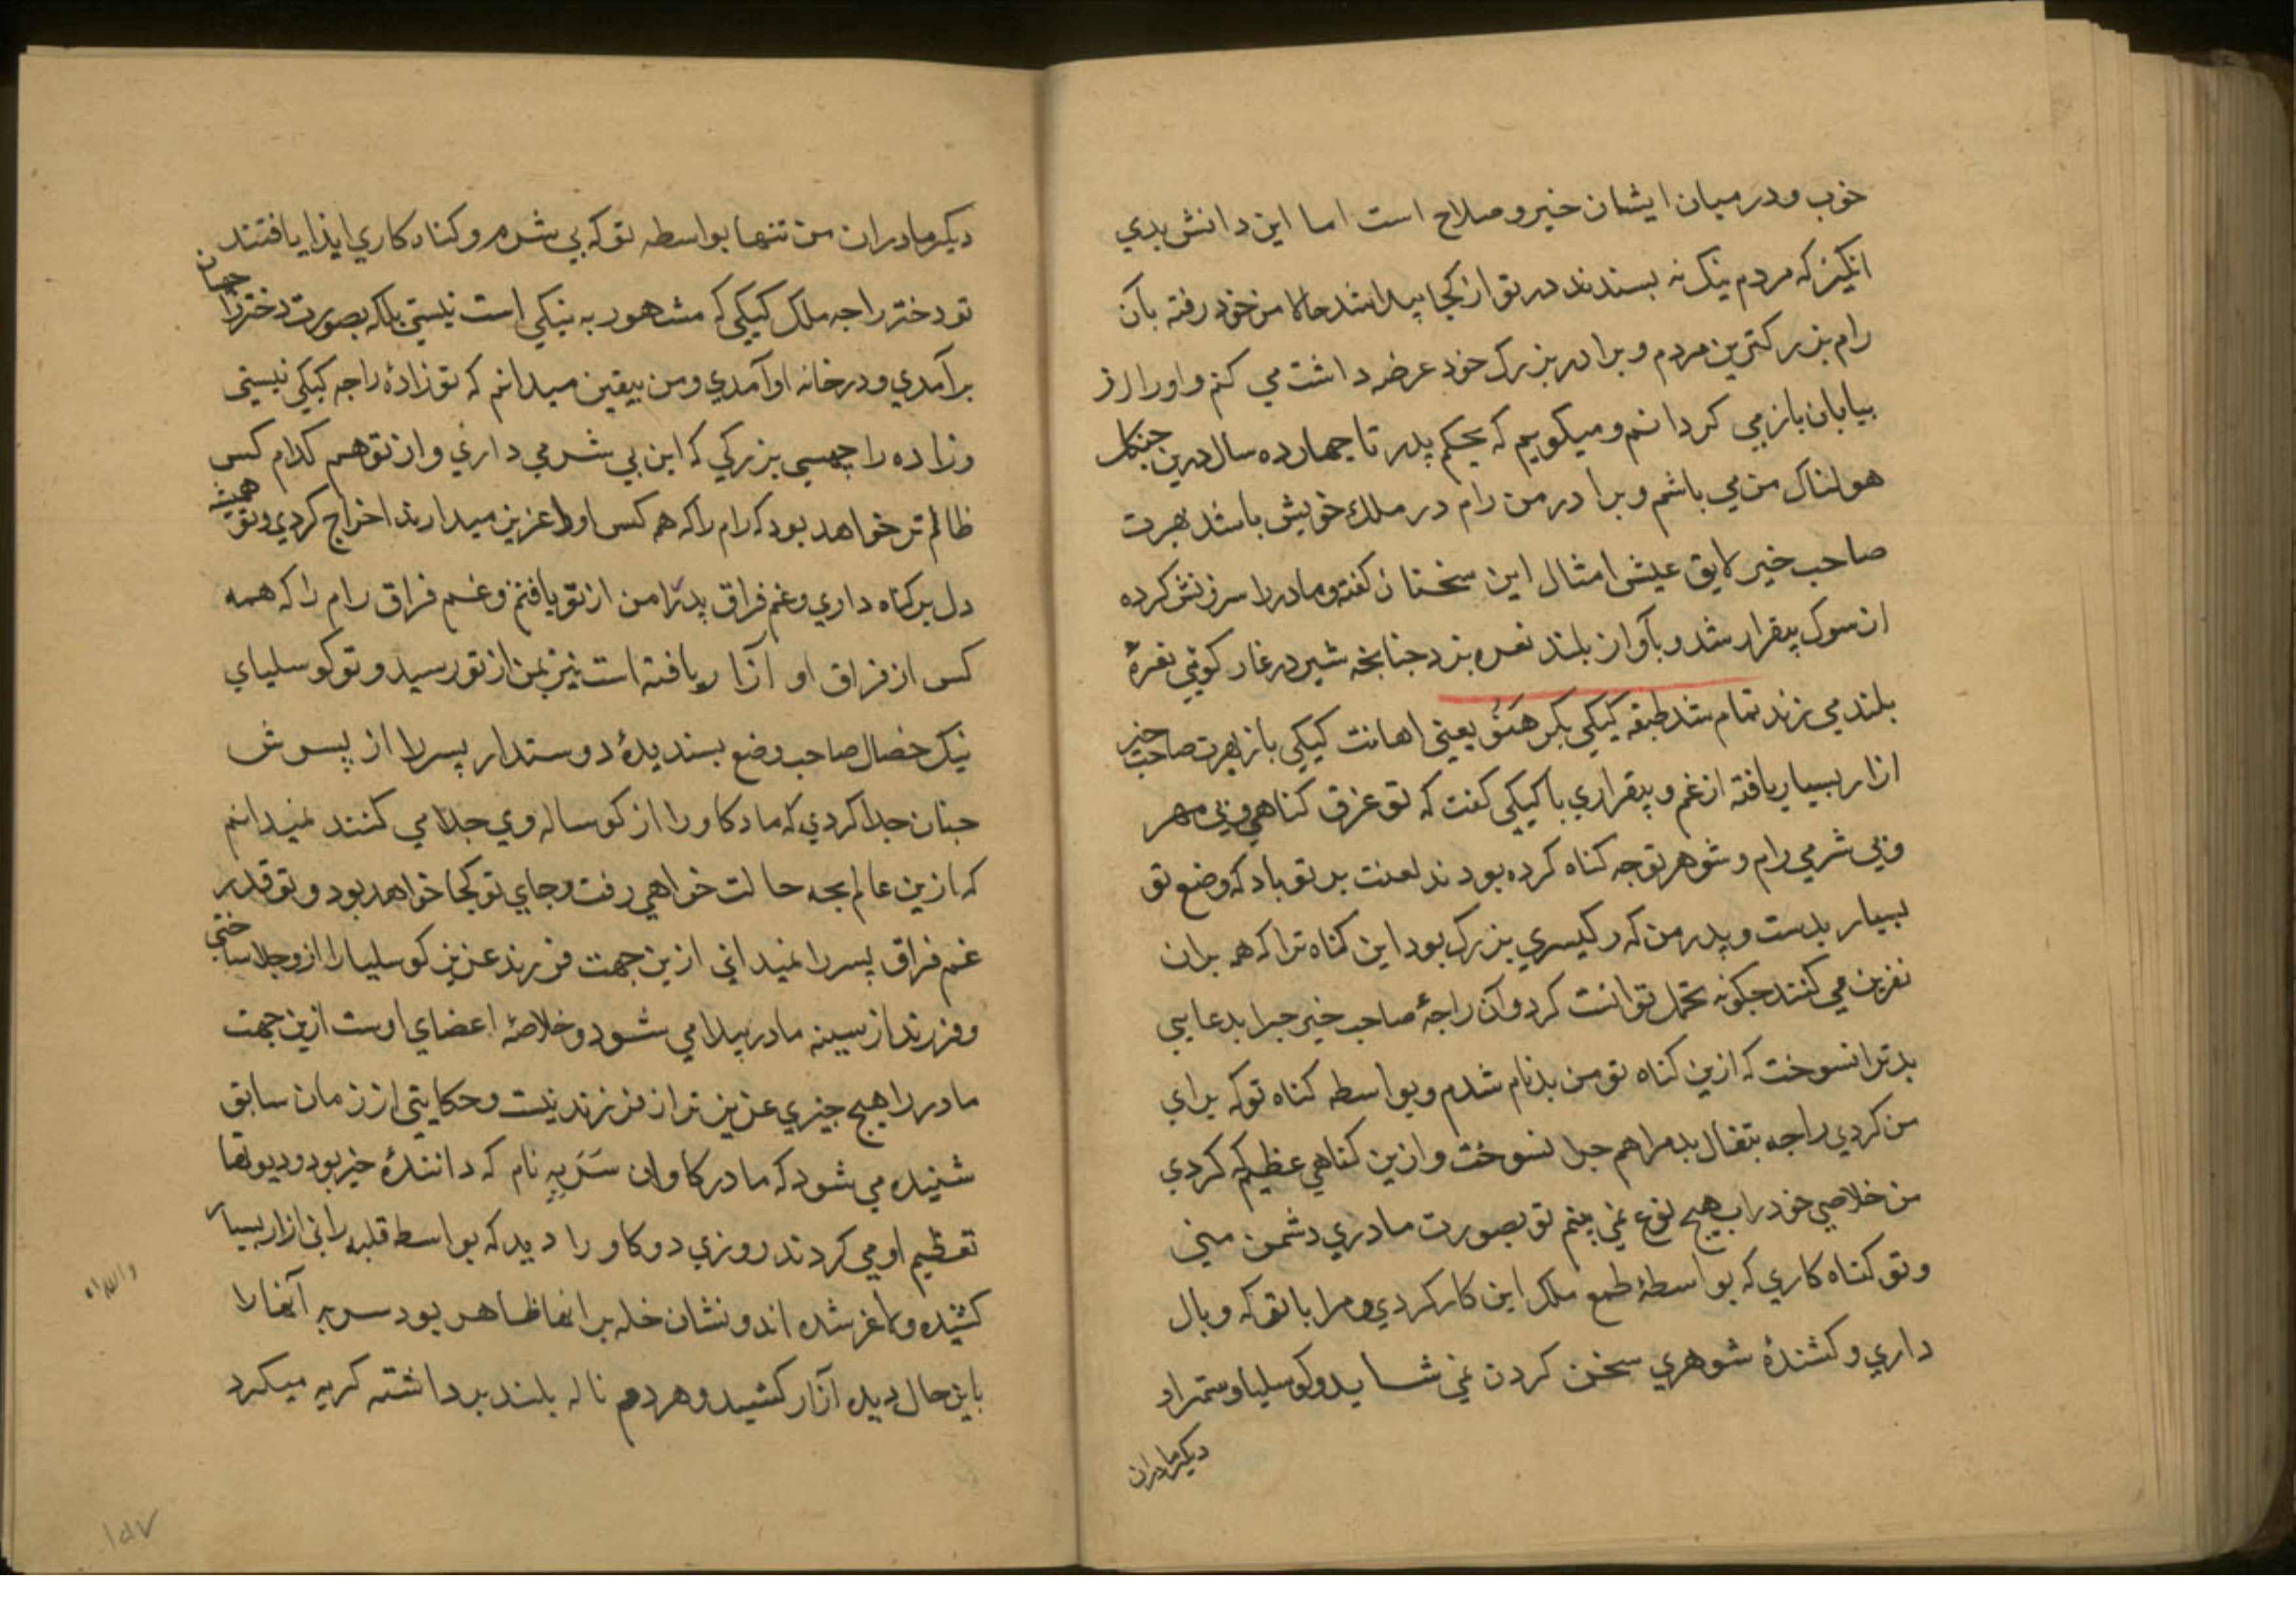 خوب و در میان ایشان خیر و صلاح است اما این دانش بدی
انکیز که مردم نیک نه بسندند در تو از کجا پیدا شد حالا من خود رفته بآن
رام بزرکترین مردم و برادر بزرک خود عرضه داشت می کنم و او را از
بیابان باز می کردانم و میکویم که بحکم پدر تا جهارده سال درین جنکل
هولناک من می باشم و برادر من رام در ملک خویش باشد بهرت
صاحب خیر لایق عیش امثال این سخنان کفته و مادر را سرزنش کرده
از سوک بیقرار شد و بآواز بلند نعره بزد جنانجه شیر در غار کوهی نعرهٔ
بلند می زند تمام شد طبقه کیکی بکر هَنَوُ یعنی اهانت کیکی باز بهرت صاحب خیر
ازار بسیار یافته از غم و بیقراری با کیکی کفت که تو غرق کناهی و بی مهر
و بی شرمی رام و شوهر تو جه کناه کرده بودند لعنت بر تو باد که وضع تو
بسیار بدست و پدر من که رکیسری بزرک بود این کناه ترا که همه بران
نفرین می کنند جکونه تحمل توانت کرد و آن راجهٔ صاحب خیر جرا بدعایی
بد ترا نسوخت که ازین کناه تو من بدنام شدم و بواسطه کناه تو که برای
من کردی راجه بتفال بد مرا هم جرا نسوخت و ازین کناهی عظیم که کردی
من خلاصی خود را ب هیج نوع نمی بینم تو بصورت مادری دشمن منی
و تو کناه کاری که بواسطهٔ طمع ملک این کار کردی و مرا با تو که وبال
داری و کشندهٔ شوهری سخن کردن نمی شاید و کوسلیا و ستمرا و
دیکر مادران
دیکر مادران من تنها بواسطه تو که بی شرم و کناه کاری ایذا یافتند
تو دختر راجه ملک کیکی که مشهور به نیکی است نیستی بلکه بصورت دختر زا جهان
برآمدی و در خانه او آمدی و من بیقین میدانم که تو زادهٔ راجه کیکی نیستی
و زاده راچهسی بزرکی که این بی شرمی داری و از تو هم کدام کس
ظالم تر خواهد بود که رام را که همه کس او را عزیز میدارند اخراج کردی و تو همیشه
دل بر کناه داری و غم فراق پدر را من از تو یافتم و غم فراق رام را که همه
کس از فراق او آزار یافته است نیز بمن از تو رسید و تو کوسلیای
نیک خصال صاحب وضع بسندیدهٔ دوستدار پسر را از پسرش
جنان جدا کردی که ماده کاو را از کوساله وی جدا می کنند نمیدانم
که ازین عالم بجه حالت خواهی رفت و جای تو کجا خواهد بود و تو قدر
غم فراق پسر را نمیدانی ازین جهت فرزند عزیز کوسلیا را از و جدا ساختی
و فرزند از سینه مادر پیدا می شود و خلاصهٔ اعضای اوست ازین جهت
مادر را هیج جیزی عزیز تر از فرزند نیست و حکایتی از زمان سابق
شنیده می شود که مادر کاوان سَرَبِهِ نام که دانندهٔ خیر بود و دیوتها
تعظیم او می کردند روزی دو کاو را دید که بواسطه قلبه رانی ازار بسیار
کشیده و لاغر شده اند و نشان خله بر انها ظاهر بود سربه آنها را
باین حال دیده آزار کشید و هر دم ناله بلند برداشته کریه میکرد
۱۵۷